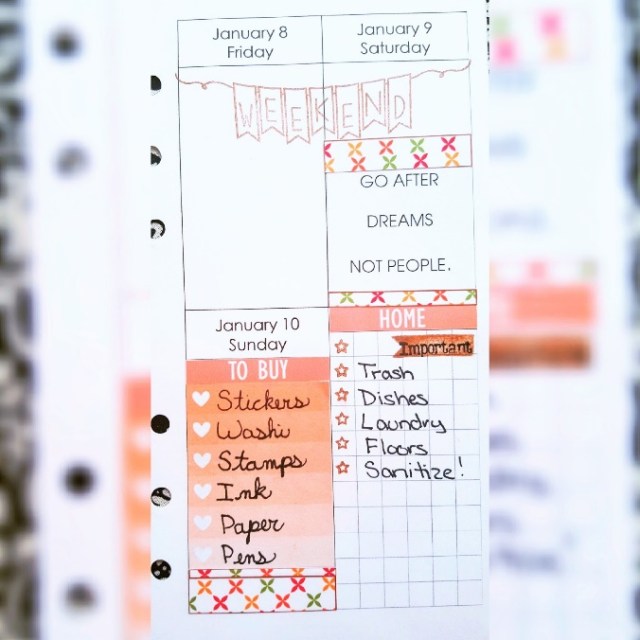 January 8
Friday
January 9
Saturday
WEEKEND
GO AFTER
DREAMS
NOT PEOPLE.
January 10
Sunday
TO BUY
Stickers
Washi
Stamps
Ink
Paper
Pens
HOME
Important
Trash
Dishes
Laundry
Floors
Sanitize!